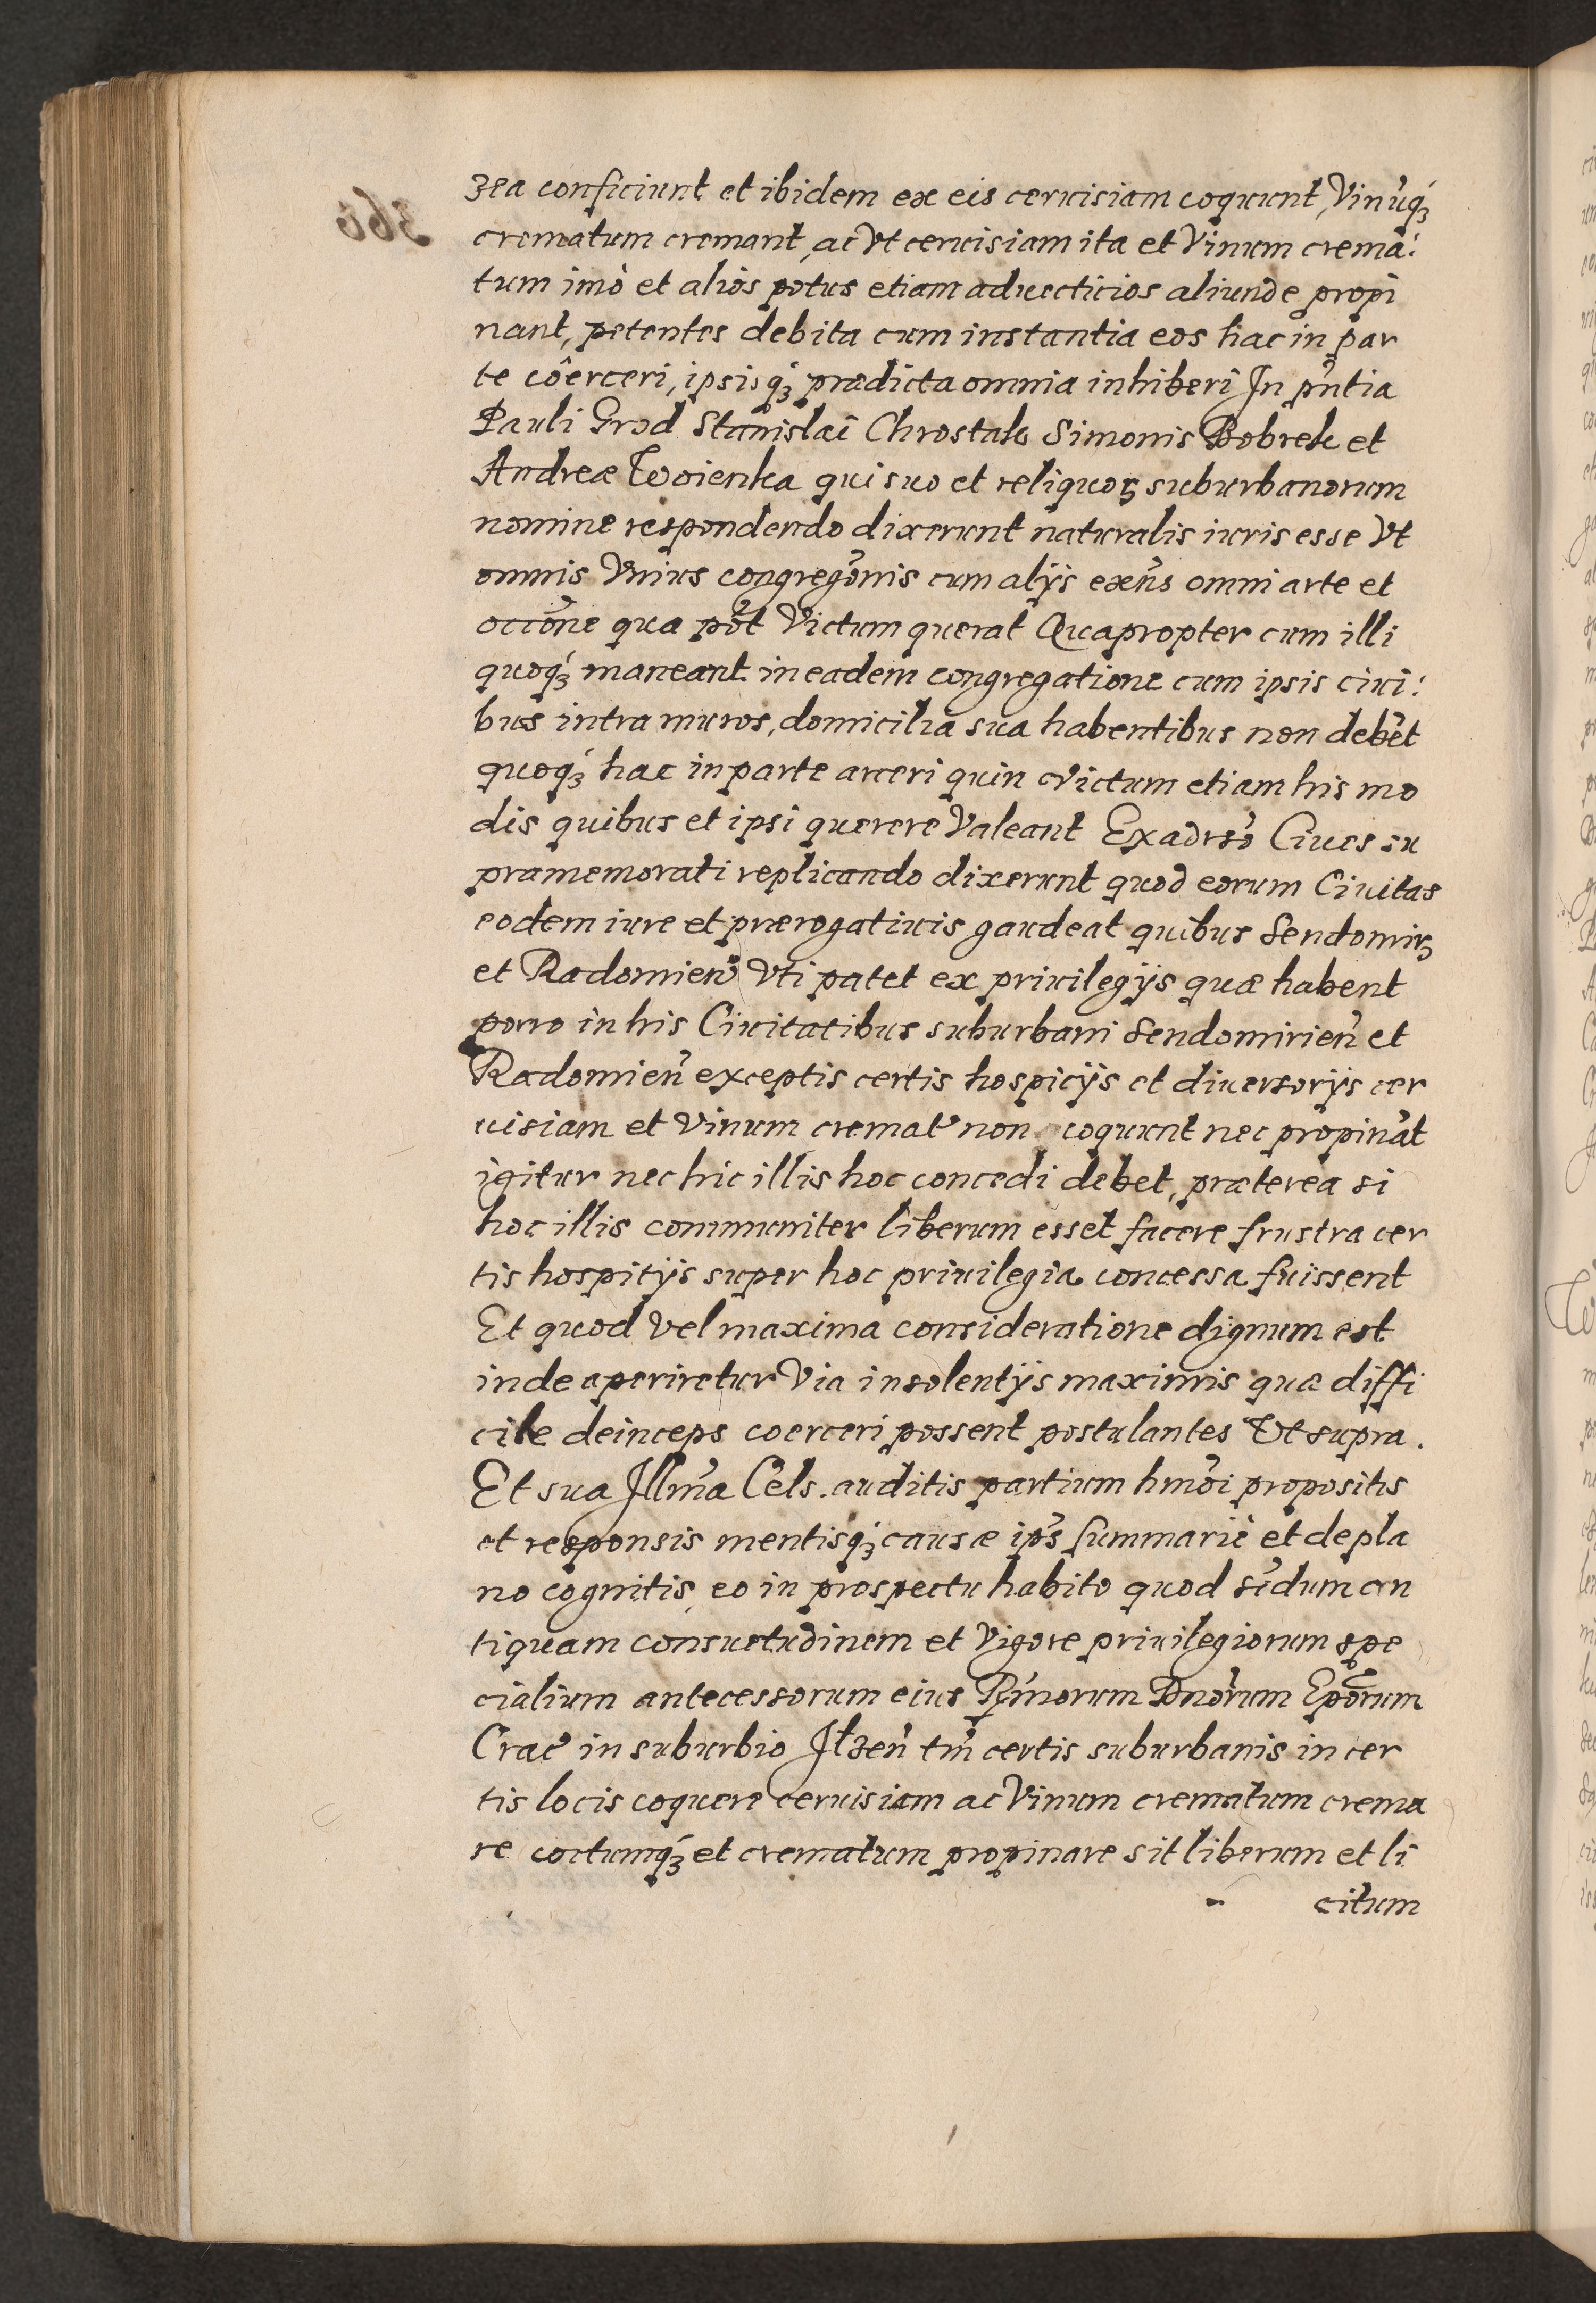 zea conficiunt et ibidem ex eis ceruisiam coquunt, Vinũq́ꝫ
crematum cremant, ac Vt ceruisiam ita et Vinum crema:
tum imò et aliòs potus etiam aduecticios aliunde propi
nant, petentes debita cum instantia eos hac in par
te côerceri, ipsisq́ꝫ prædicta omnia inhiberi In pñtia
Pauli Grod Stanislai Chrostek Simonis Bobrek et
Andreæ Twoienka qui suo et reliquoꝝ suburbanorum
nomine respondendo dixerunt naturalis iuris esse Vt
omnis Vnius congregõnis cum alijs exñs omni arte et
occõne qua põt Victum querat Quapropter cum illi
quoq́ꝫ maneant in eadem congregatione cum ipsis ciui:
bus intra muros, domicilia sua habentibus non debẽt
quoq́ꝫ hac in parte arceri quin Victum etiam his mo
dis quibus et ipsi querere Valeant Ex adrsõ Ciues su
pramemorati replicando dixerunt quod eorum Ciuitas
eodem iure et prærogatiuis gaudeat quibus Sendomirꝫ
et Radomień Vti patet ex priuilegijs quæ habent
porro in his Ciuitatibus suburbani Sendomirieñ et
Radomieñ exceptis certis hospicijs et diuersorijs cer
uisiam et Vinum cremat̃ non coquunt nec propinãt
igitur nec hic illis hoc concedi debet, præterea si
hoc illis communiter liberum esset facere frustra cer
tis hospitijs super hoc priuilegia concessa fuissent
Et quod Vel maxima consideratione dignum est
inde aperiretur Via insolentijs maximis quæ diffi
cile deinceps coerceri possent postulantes Vt supra.
Et sua Illm̃a Cels. auditis partium hmõi propositis
et responsis mentisq́ꝫ causæ ip̃s summariè et de pla
no cognitis, eo in prospectu habito quod sc̃dum an
tiquam consuetudinem et Vigore priuilegiorum spe
cialium antecessorum eius Rm̃orum Dnõrum Epõrum
Crac̃ in suburbio Iłzeñ tm̃ certis suburbanis in cer
tis locis coquere ceruisiam ac Vinum crematum crema
re coctumq́ꝫ et crematum propinare sit liberum et li
citum